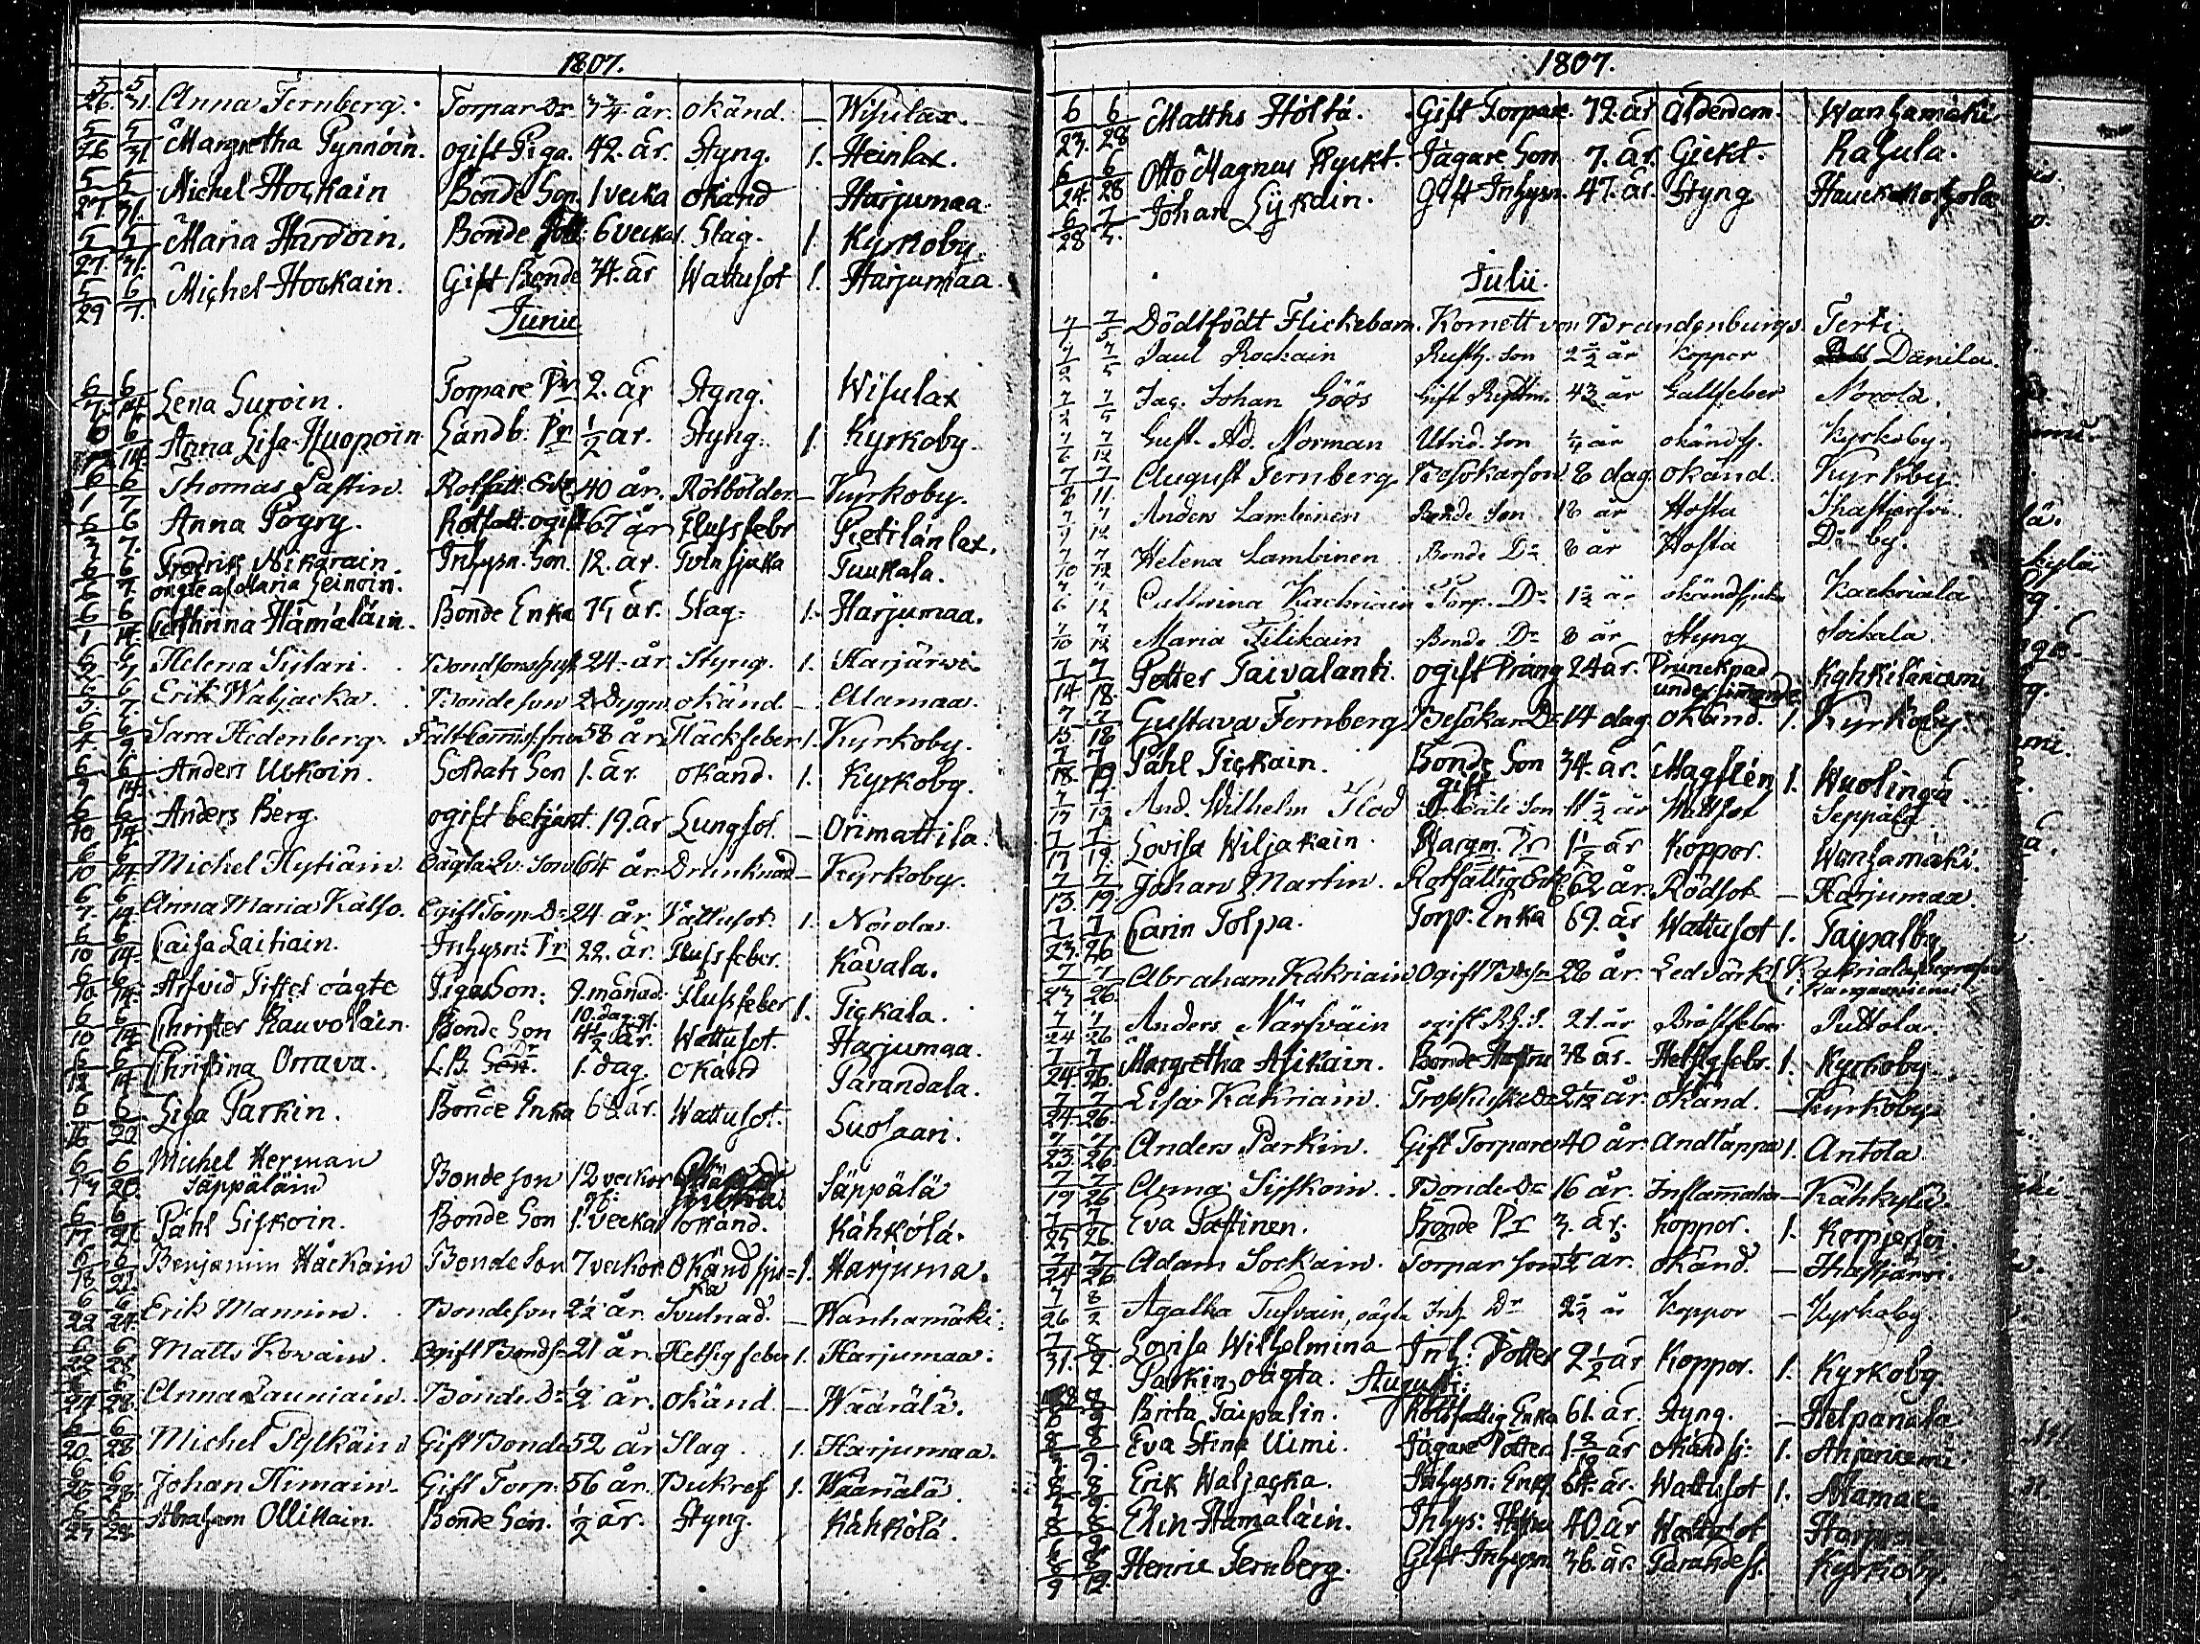 1807.
5/26. 5/31. Anna Fernberg. Torpar Dr 3/4 år. okänd. — Wisulax.
5/26 5/31 Margretha Pynnöin. ogift Piga. 42. år. Styng. 1. Heinlax.
5/27. 5/31. Michel Hockain Bonde Son 1 vecka okänd Harjumaa.
5/27. 5/31. Maria Hardoin. Bonde 6 veckor. Slag. 1. Kyrkoby.
5/29 6/7. Michel Hockain. Gift Bonde 34. år Wattusot 1. Harjumaa.
Junii
6/7. 6/14. Lena Suroin. Torpare Pr 2. år Styng. Wisulax
6/14. Anna Lisa Huopoin Landb. Pr 1/2 år. Styng. 1. Kyrkoby.
6/1 6/7 Thomas Pastin. Rotfatt. Enkl. 40 år. Rötbölder — Kyrkoby.
6/7. Anna Pögry. Rotfatt. ogift 67 år Flussfebr Pietilänlax.
6/7. Fredrik Nikarain. Inhysn. Son. 12. år. Tvinsjuka Tuukala.
oägte af Maria Leinoin.
6/1 6/14. Cathrina Hämäläin. Bonde Enka 74 år. Slag. 1. Harjumaa.
Helena Sijtari. Bondsonshust 24 år Styng. 1. Karjärwi
6/3 6/7. Erik Waljacka. Bondeson 2 Dygn okänd. — Alamaa.
6/4. 6/9. Sara Hedenberg. Fält Commiss: fru 58 år Fläckfeber 1. Kyrkoby.
6/9 6/14. Anders Uckoin. Soldats Son 1. år. okänd. 1. Kyrkoby.
6/10 6/14. Anders Berg. ogift betjänt. 19. år Lungsot. — Orimattila.
6/10 6/14 Michel Hytiäin. Oägta Qv: Son 64 år Drunknad — Kyrkoby.
6/7. 6/14. Anna Maria Kälfo. Ogift Torp. Dr 24 år. Vattusot. 1. Norola.
6/10 6/14. Caisa Laitiain. Inhysn: Pr 22. år. Flussfeber. Kavala.
6/10. 6/14. Arfvid Tiffel oägte Piga Son: 9. månad. Flussfeber 1. Tickala.
6/10 6/14 Christer Rauvolain. Bonde Son 10. dag. gl. 4 1/2 år. Wattusot. Harjumaa.
6/12 6/14 Christina Orrava. L.B. Son. 1. dag. okänd Parandala.
6/16 6/20 Lisa Parkin. Bonde Enka 6 år. Wattusot. Suosaari.
6/17 6/20. Michel Herman
Säppäläin Bondeson 12 veckor Säppälä
6/17 6/21 Påhl Sifkoin. Bonde Son 1. vecka okänd. Kähkölä.
6/18 6/21. Benjamin Håckain Bonde Son 7 veckor. Okänd sju= 1. Harjuma.
ka
6/22 6/24. Erik Mannin. Bondeson 2 1/2 år Svulnad. — Wanhamäki.
6/22 6/28 Matts Kovain. Ogift Bonds: 21 år. Hetsig feber 1. Harjumaa:
6/24 6/28. Anna Launiain. Bonde Dr 1/2 år. okänd. — Wäärälä.
6/20. 6/28 Michel Pylkäin Gift Bonde 52 år Slag. 1. Harjumaa.
6/25 6/28. Johan Himain. Gift Torp. 56 år. Bukref 1. Wäärälä.
6/27 6/28. Abraham Ollikain. Bonde Son. 1/2 år. Styng. Kähkölä.
1807.
6/23. 6/28 Matths Höltä. Gift Torpare. 72. år Ålderdom. Wanhamäki
6/24. 6/28 Otto Magnus Hyckt. Jägare Son 7. år. Gickt. Rahula.
6/28 7/5. Johan Lyckain. Gift Inhysn. 47. år. Styng Hauckanotzola
Julii.
7/1 7/5 Dödfödt Flickebarn. Kornett von Brandenburgs. Terti
7/2 7/5 Paul Rockain Rusth. Son 2 1/2 år Koppor Danila.
7/2 7/5 Jag. Johan Göös Gift Ryttm. 43 år Gallfeber Norola.
7/6 7/12 Gust. Ad. Norman Utrid. Son 1/4 år okändsj. Kyrkoby.
7/8 7/11. August Fernberg Besökarson 8 dag. okänd. Kyrkby.
7/7 7/12 Anders Lambinen Bonde Son 18 år Hosta Ihastjerfvi.
7/10 7/12 Helena Lambinen Bonde Dr 8 år Hosta D:o by.
7/6 7/12 Cathrina Kackriain Torp. Dr 1 1/2 år okändsjuka Kackriala
7/10 7/12 Maria Filikain Bonde Dr 8 år Styng Soikala.
7/14 7/18. Petter Taivalanti. ogift Dräng 24 år. Druncknad Kyhkiläniemi
under simmande
7/15 7/18 Gustava Fernberg Besökar Dr 14 dag. okänd. 1. Kyrkoby.
7/18. 7/19. Påhl Tickain. Bonde Son 34. år. Magflén 1. Wuolinga
gift
7/17 7/19 And. Wilhelm Flod Son 11 1/2 år Wattsot Seppälä
7/17 7/19. Lovisa Wiljakain. Wargm. Pr 1 1/2 år Koppor. Wanhamäki.
7/13. 7/19. Johan Martin. Rotfattig Enkl. 62 år. Rödsot — Harjumaa.
7/23. 7/26 Carin Tolpa. Torp. Enka 69. år Wattusot 1. Taipalby.
7/23 7/26. Abraham Kakriain Ogift B:s 28 år. Ledvärk 1. Kakriala begrafven
i Kangasniemi
7/24 7/26 Anders Närfväin ogift R.H.S. 21 år Bröstfeber Puttola.
7/24. 7/26. Margretha Asikain. Bonde Hustru 38 år. Hetsig febr. 1. Kyrkoby.
7/24. 7/26. Lisa Kakriain. år. okänd. — Kyrkoby.
7/23 7/26. Anders Parkin. Gift Torpare 40 år. Andtäppa 1. Antola
7/19 7/26 Anna Sifkoin. Bonde Dr 16 år. Inflammation — Kähkylä.
7/25 7/26. Eva Pastinen. Bonde Pr 3. år. Koppor. 1. Korpjerfvi.
7/24 7/26 Adam Sockain. Torpar Son år. okänd. — Ihastjärvi.
7/26 8/2 Agatha Tufvain, oägta Inh. Dr 2 1/2 år Koppor — Kyrkoby.
7/31. 8/2. Lovisa Wilhelmina Inh: Dotter 2 1/2 år Koppor. 1. Kyrkoby
Parkin, oägta. Augusti:
8/9 Brita Taipalin. Rotfattig Enka 61. år. Styng. — Helpanala
8/9. Eva Stina Uimi. Jägare Dotter 1 år okänd sj: 1. Anjaniemi
8/9. Erik Waljacka. Inhysn: Enkl. 64. år. Wattusot 1. Alamaa.
8/9 Elin Hämäläin. Inhys: Hustru 40. år Wattusot Harjumaa
8/9 8/12. Henric Fernberg. Gift Inhysn 36. år. Kyrkoby.